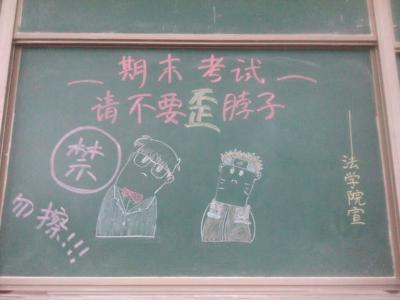 期末考试
请不要歪脖子
禁
勿擦!!!
——法学院宣